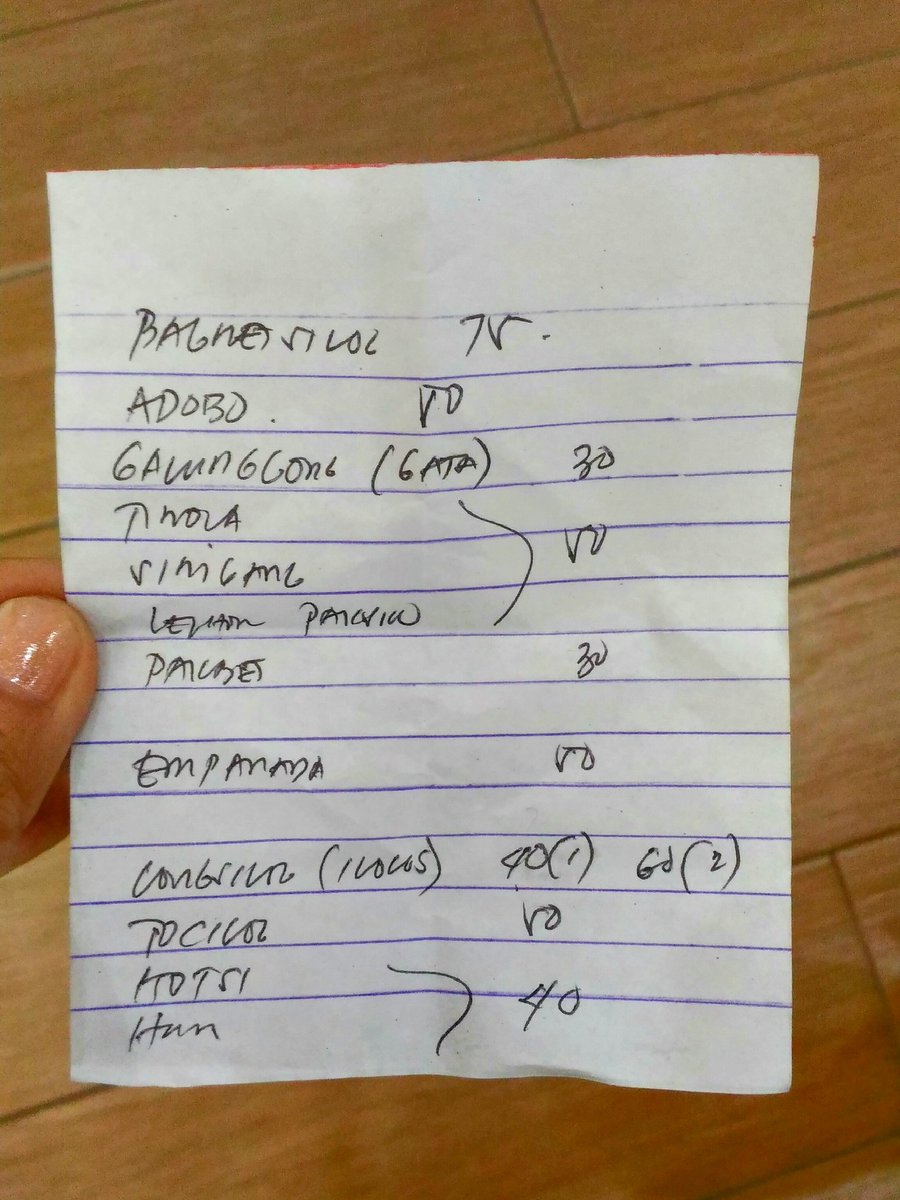 BAGNETSILOG 75.
ADOBO. 50
GALUNGGONG (GATA) 30
TINOLA
SINIGANG 50
LECHON PAKSIW
PAKBET 30
EMPANADA 50
LONGSILOG (ILOCOS) 40(1) 60(2)
TOCILOG 50
HOTSI
HAM 40